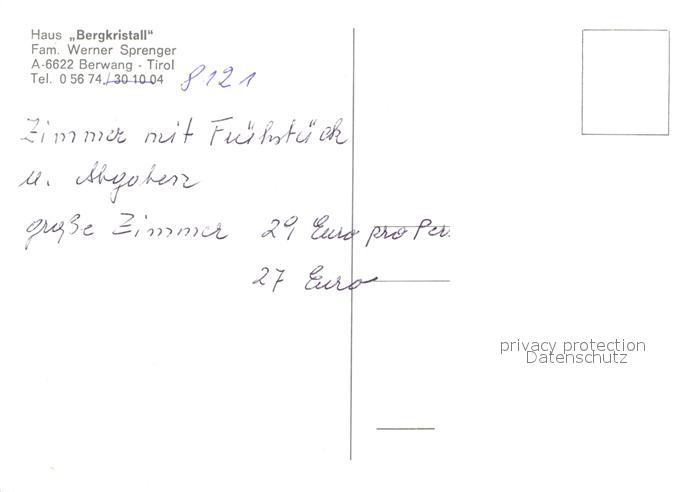 Haus „Bergkristall“
Fam. Werner Sprenger
A-6622 Berwang - Tirol
Tel. 0 56 74 / 30 10 04 8121
Zimmer mit Frühstück
u. Abgaben
große Zimmer 29 Euro pro Per.
27 Euro
privacy protection
Datenschutz